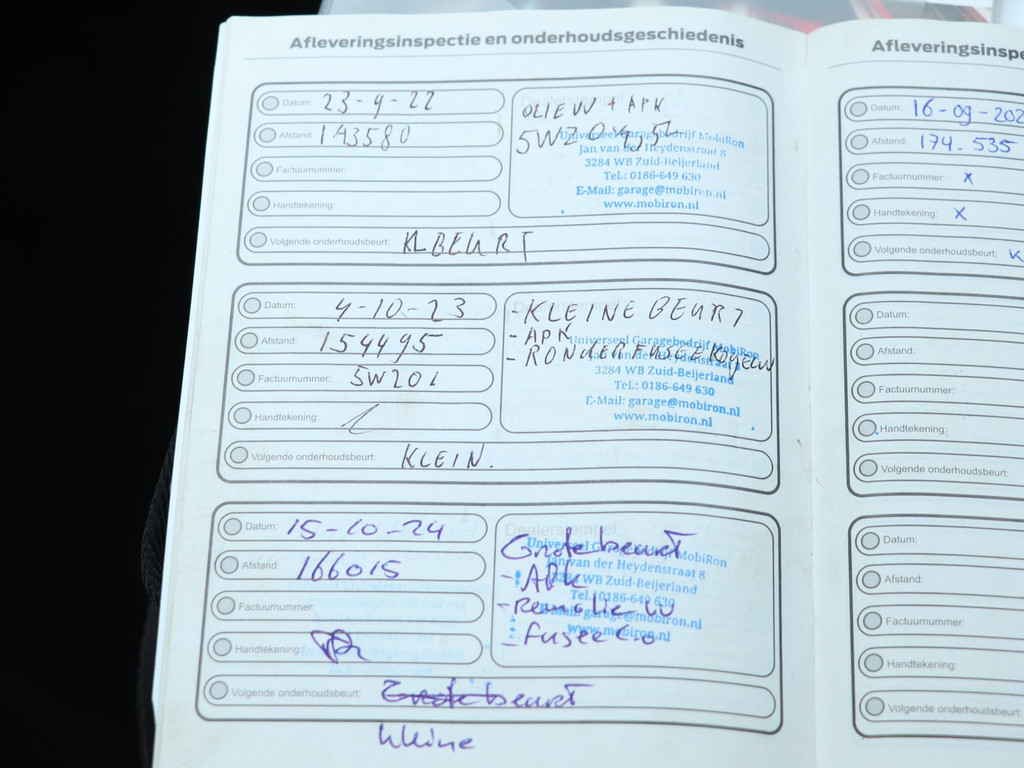 Afleveringsinspectie en onderhoudsgeschiedenis
Datum: 23-4-22
Afstand: 143580
Factuurnummer:
Handtekening:
Volgende onderhoudsbeurt: KL BEURT
OLIE VV + APK
5W20
Universeel Garagebedrijf MobiRon
Jan van der Heydenstraat 8
3284 WB Zuid-Beijerland
Tel.: 0186-649 630
E-Mail: garage@mobiron.nl
www.mobiron.nl
Datum: 4-10-23
Afstand: 154495
Factuurnummer: 5W20
Handtekening:
Volgende onderhoudsbeurt: KLEIN.
Dealerstempel
- KLEINE BEURT
- APK
- FUSEEKOGEL
Universeel Garagebedrijf MobiRon
Jan van der Heydenstraat
3284 WB Zuid-Beijerland
Tel.: 0186-649 630
E-Mail: garage@mobiron.nl
www.mobiron.nl
Datum: 15-10-24
Afstand: 166015
Factuurnummer:
Handtekening:
Volgende onderhoudsbeurt: Grote beurt
kleine
Dealerstempel
Grote beurt
- APK
- Remolie
- Fusee
Universeel Garagebedrijf MobiRon
Jan van der Heydenstraat 8
3284 WB Zuid-Beijerland
Tel.: 0186-649 630
E-Mail: garage@mobiron.nl
www.mobiron.nl
Afleveringsinspe
Datum: 16-09-202
Afstand: 174.535
Factuurnummer: x
Handtekening: x
Volgende onderhoudsbeurt: K
Datum:
Afstand:
Factuurnummer:
Handtekening:
Volgende onderhoudsbeurt:
Datum:
Afstand:
Factuurnummer:
Handtekening:
Volgende onderhoudsbeurt